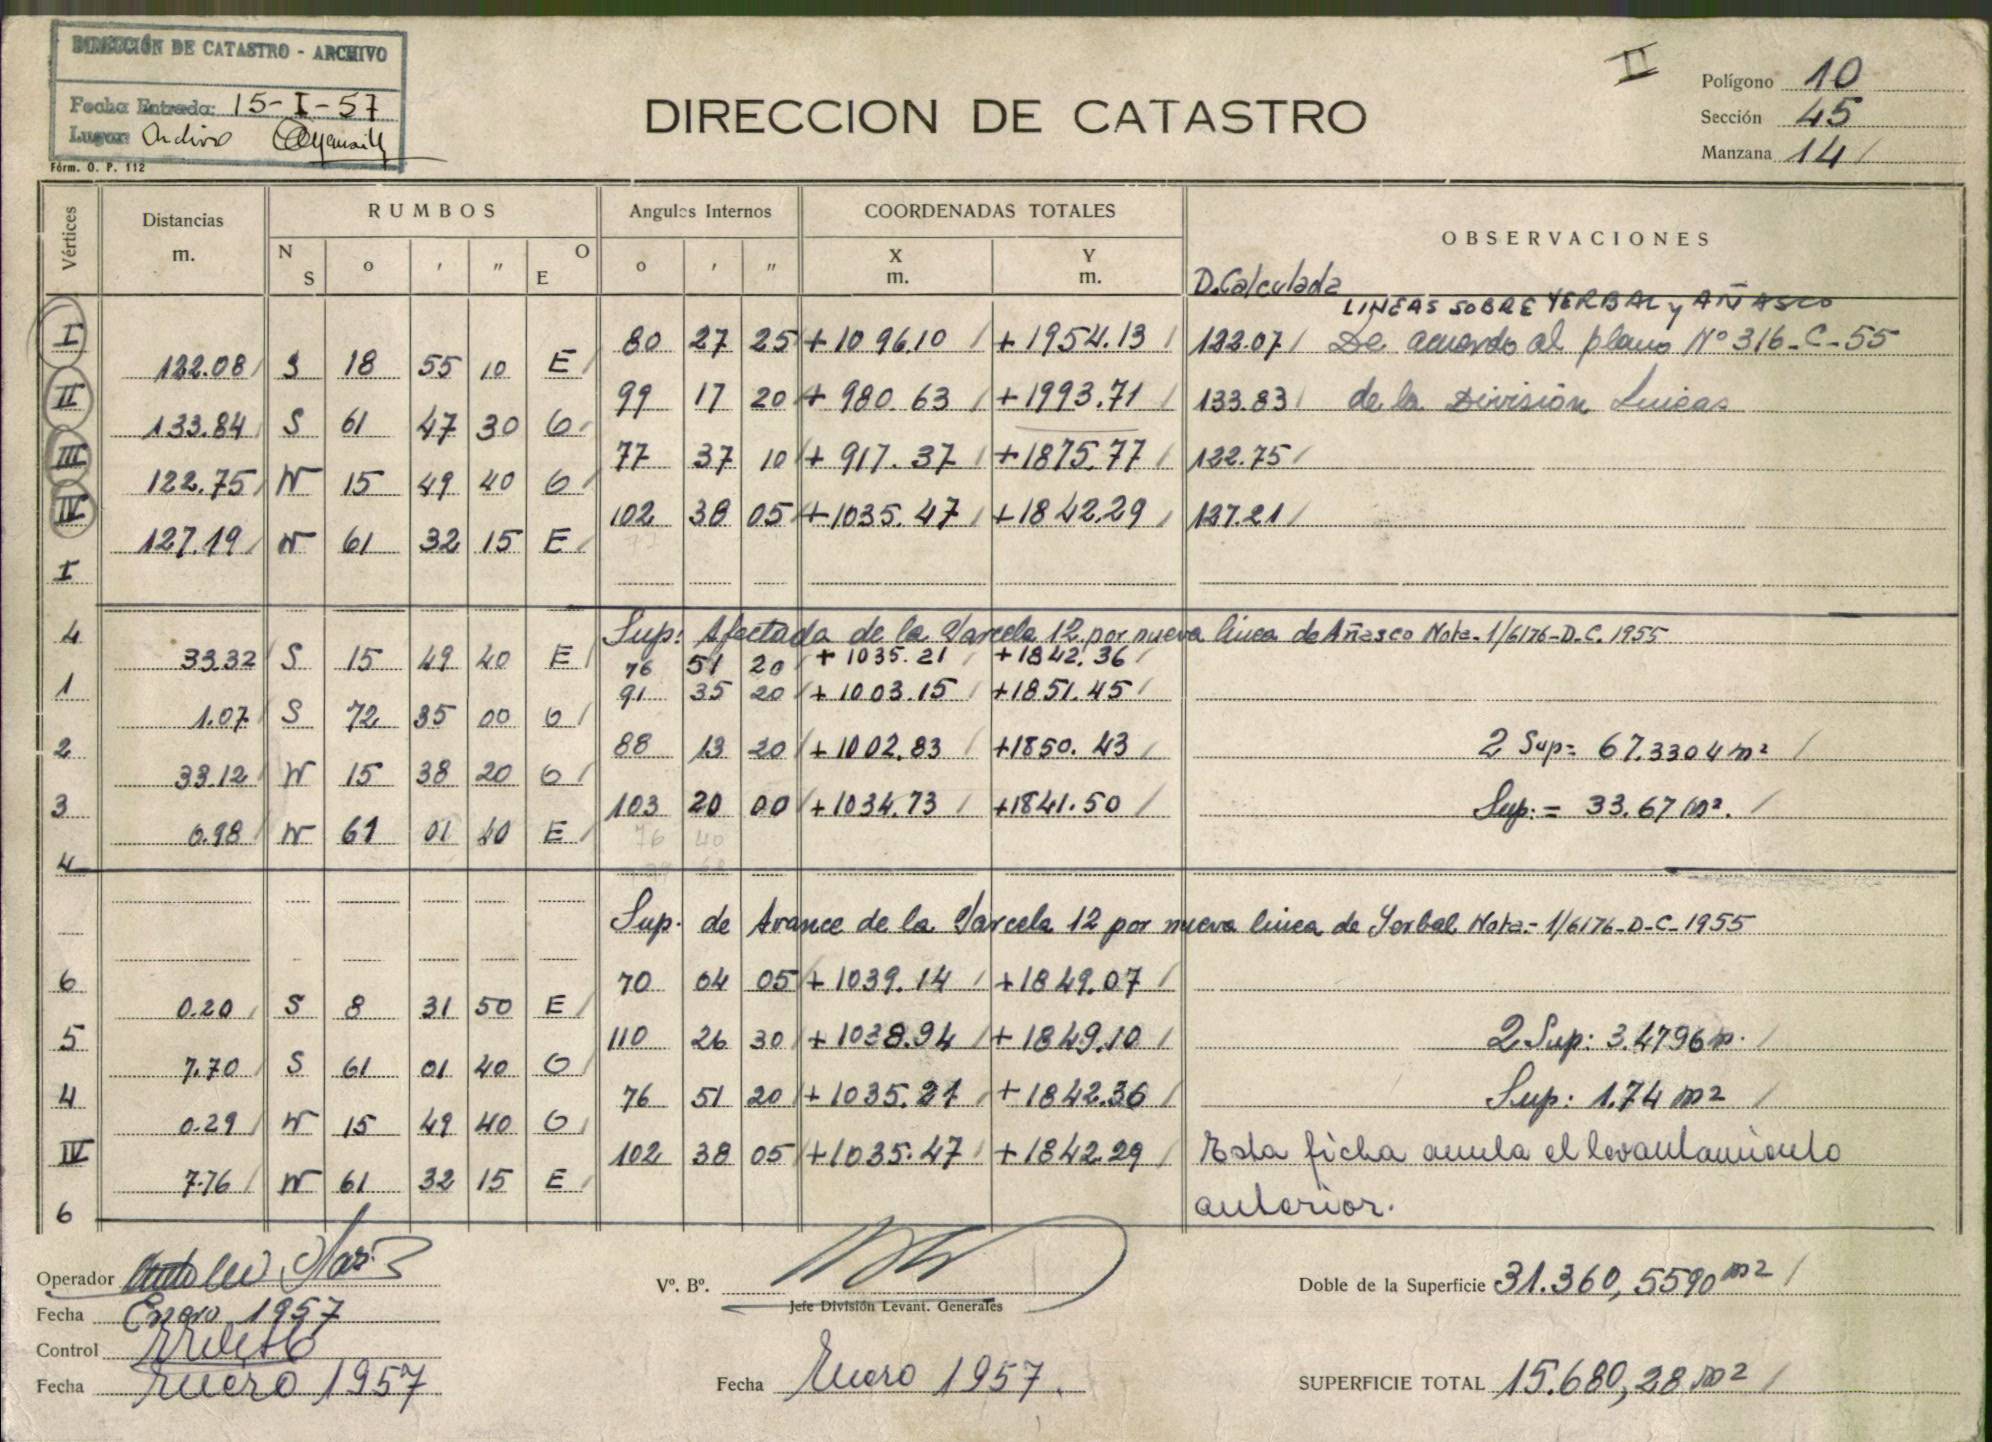 DIRECCIÓN DE CATASTRO - ARCHIVO
Fecha Entrada: 15-I-57
Lugar: Archivo
Fórm. O. P. 112
DIRECCION DE CATASTRO
II
Polígono 10
Sección 45
Manzana 14
Vértices Distancias m. RUMBOS Angulos Internos COORDENADAS TOTALES OBSERVACIONES
N S o ' " O E o ' " X m. Y m.
D. Calculada
LINEAS SOBRE YERBAL y AÑASCO
I 80 27 25 + 1096.10 + 1954.13 122.07 De acuerdo al plano Nº 316-C-55
122.08 S 18 55 10 E
II 99 17 20 + 980.63 + 1993.71 133.83 de la División Lineas
133.84 S 61 47 30 O
III 77 37 10 + 917.37 + 1875.77 122.75
122.75 N 15 49 40 O
IV 102 38 05 + 1035.47 + 1842.29 127.21
127.19 N 61 32 15 E
I
4 Sup: Afectada de la Parcela 12 por nueva linea de Añasco Nota-1/6176-D.C. 1955
33.32 S 15 49 40 E 76 51 20 + 1035.21 + 1842.36
1 91 35 20 + 1003.15 + 1851.45
1.07 S 72 35 00 O
2 88 13 20 + 1002.83 + 1850.43 2 Sup= 67.3304 m²
33.12 N 15 38 20 O
3 103 20 00 + 1034.73 + 1841.50 Sup: = 33.67 m².
0.98 N 61 01 40 E
76 40
4
Sup. de Avance de la Parcela 12 por nueva linea de Yerbal Nota-1/6176-D-C-1955
6 70 04 05 + 1039.14 + 1849.07
0.20 S 8 31 50 E
5 110 26 30 + 1038.94 + 1849.10 2 Sup: 3.4796 m.
7.70 S 61 01 40 O
4 76 51 20 + 1035.21 + 1842.36 Sup: 1.74 m²
0.29 N 15 49 40 O
IV 102 38 05 + 1035.47 + 1842.29 Esta ficha anula el levantamiento
7.76 N 61 32 15 E anterior.
6
Operador
Fecha Enero 1957
Control
Fecha Enero 1957
Vº. Bº.
Jefe División Levant. Generales
Fecha Enero 1957.
Doble de la Superficie 31.360,5590 m²
SUPERFICIE TOTAL 15.680,28 m²